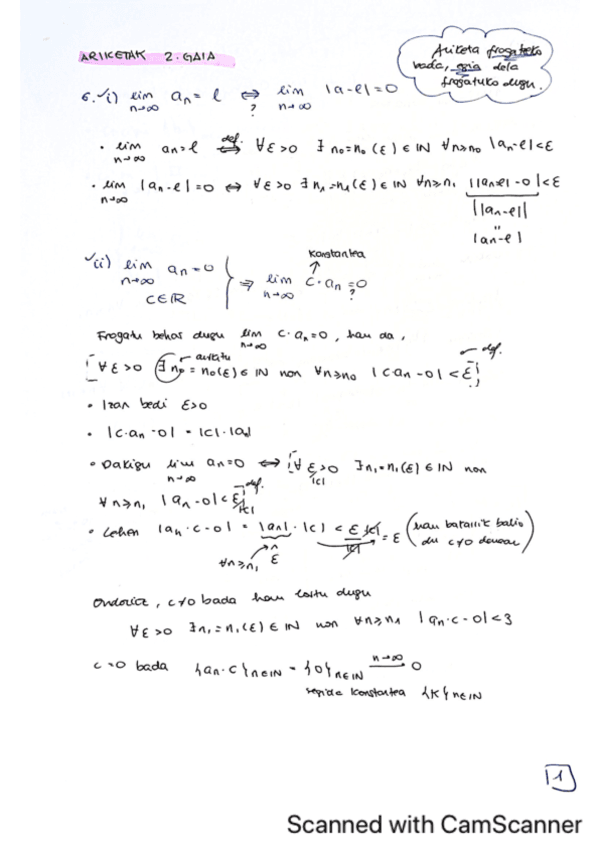 ARIKETAK 2. GAIA
Ariketa frogatzeko
bada, egia dela
frogatuko dugu.
6. ✓ i) lim n→∞ an = l ⇔? lim n→∞ |a-l| = 0
• lim n→∞ an = l ⇔ def. ∀ε>0 ∃ n0=n0(ε) ∈ IN ∀n≥n0 |an-l|<ε
• lim n→∞ |an-l| = 0 ⇔ ∀ε>0 ∃ n1=n1(ε) ∈ IN ∀n≥n1 ||an-l|-0|<ε
||an-l||
"
|an-l|
Konstantea
✓ ii) lim n→∞ an = 0
c∈IR } ⇒ lim n→∞ c·an =? 0
Frogatu behar dugu lim n→∞ c·an = 0, hau da,
aurkitu
def.
∀ε>0 ∃ n0 = n0(ε) ∈ IN non ∀n≥n0 |can-0| < ε
• Izan bedi ε>0
• |c·an-0| = |c|·|an|
• Dakigu lim n→∞ an=0 ⇔ ∀ ε/|c| >0 ∃ n1=n1(ε) ∈ IN non
∀n≥n1 |an-0| < ε/|c| def.
• Lehen |an·c-0| = |an|·|c| < ε/|c| |c| = ε (hau bakarrik balio
du c≠0 denean)
∀n≥n1 ε
Ondorioz, c≠0 bada hau lortu dugu
∀ε>0 ∃n1=n1(ε) ∈ IN non ∀n≥n1 |an·c-0|<3
c=0 bada {an·c}n∈IN = {0}n∈IN n→∞ → 0
segida konstantea {K}n∈IN
1
Scanned with CamScanner